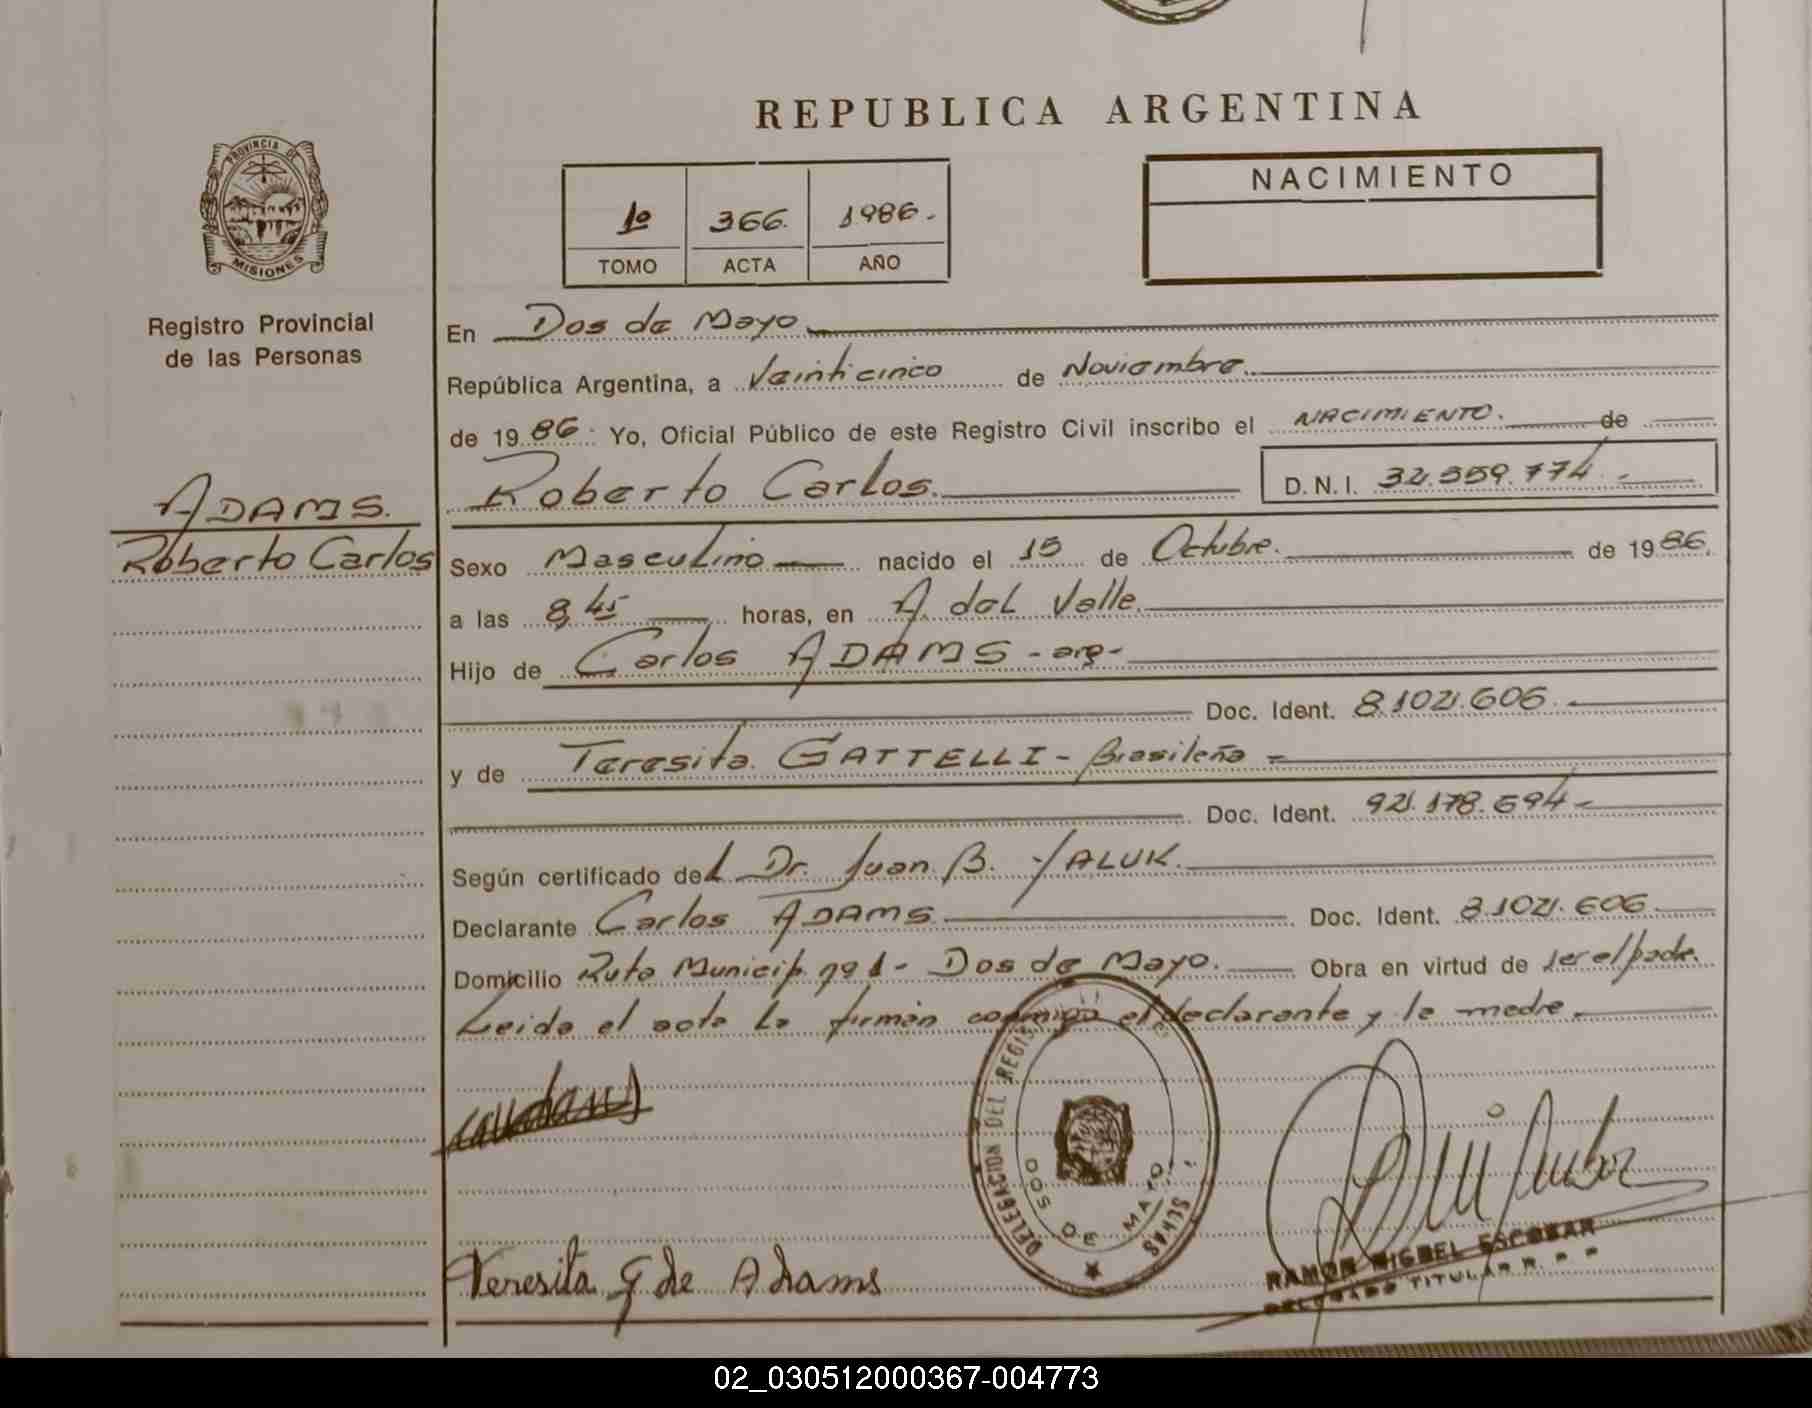 REPUBLICA ARGENTINA
PROVINCIA DE
MISIONES
Registro Provincial
de las Personas
1º 366. 1986.-
TOMO ACTA AÑO
NACIMIENTO
En Dos de Mayo
República Argentina, a Veinticinco de Noviembre.
de 1986. Yo, Oficial Público de este Registro Civil inscribo el NACIMIENTO. de
ADAMS.
Roberto Carlos
Roberto Carlos.
D.N.I. 32.559.774.-
Sexo Masculino nacido el 15 de Octubre. de 1986.
a las 8,45 horas, en A. del Valle.
Hijo de Carlos ADAMS - arg-
Doc. Ident. 8.102.606.
y de Teresita GATTELLI - Brasileña
Doc. Ident. 92.178.694-
Según certificado del Dr. Juan B. YALUK.
Declarante Carlos ADAMS. Doc. Ident. 8.102.606
Domicilio Ruta Municip. nº 1- Dos de Mayo. Obra en virtud de ser el padre.
Leida el acta la firman conmigo el declarante y la madre.
DELEGACION DEL REGIS
DOS DE MAYO
Teresita G de Adams
RAMON MIGUEL ESCOBAR
DELEGADO TITULAR R. P. P.
02_030512000367-004773